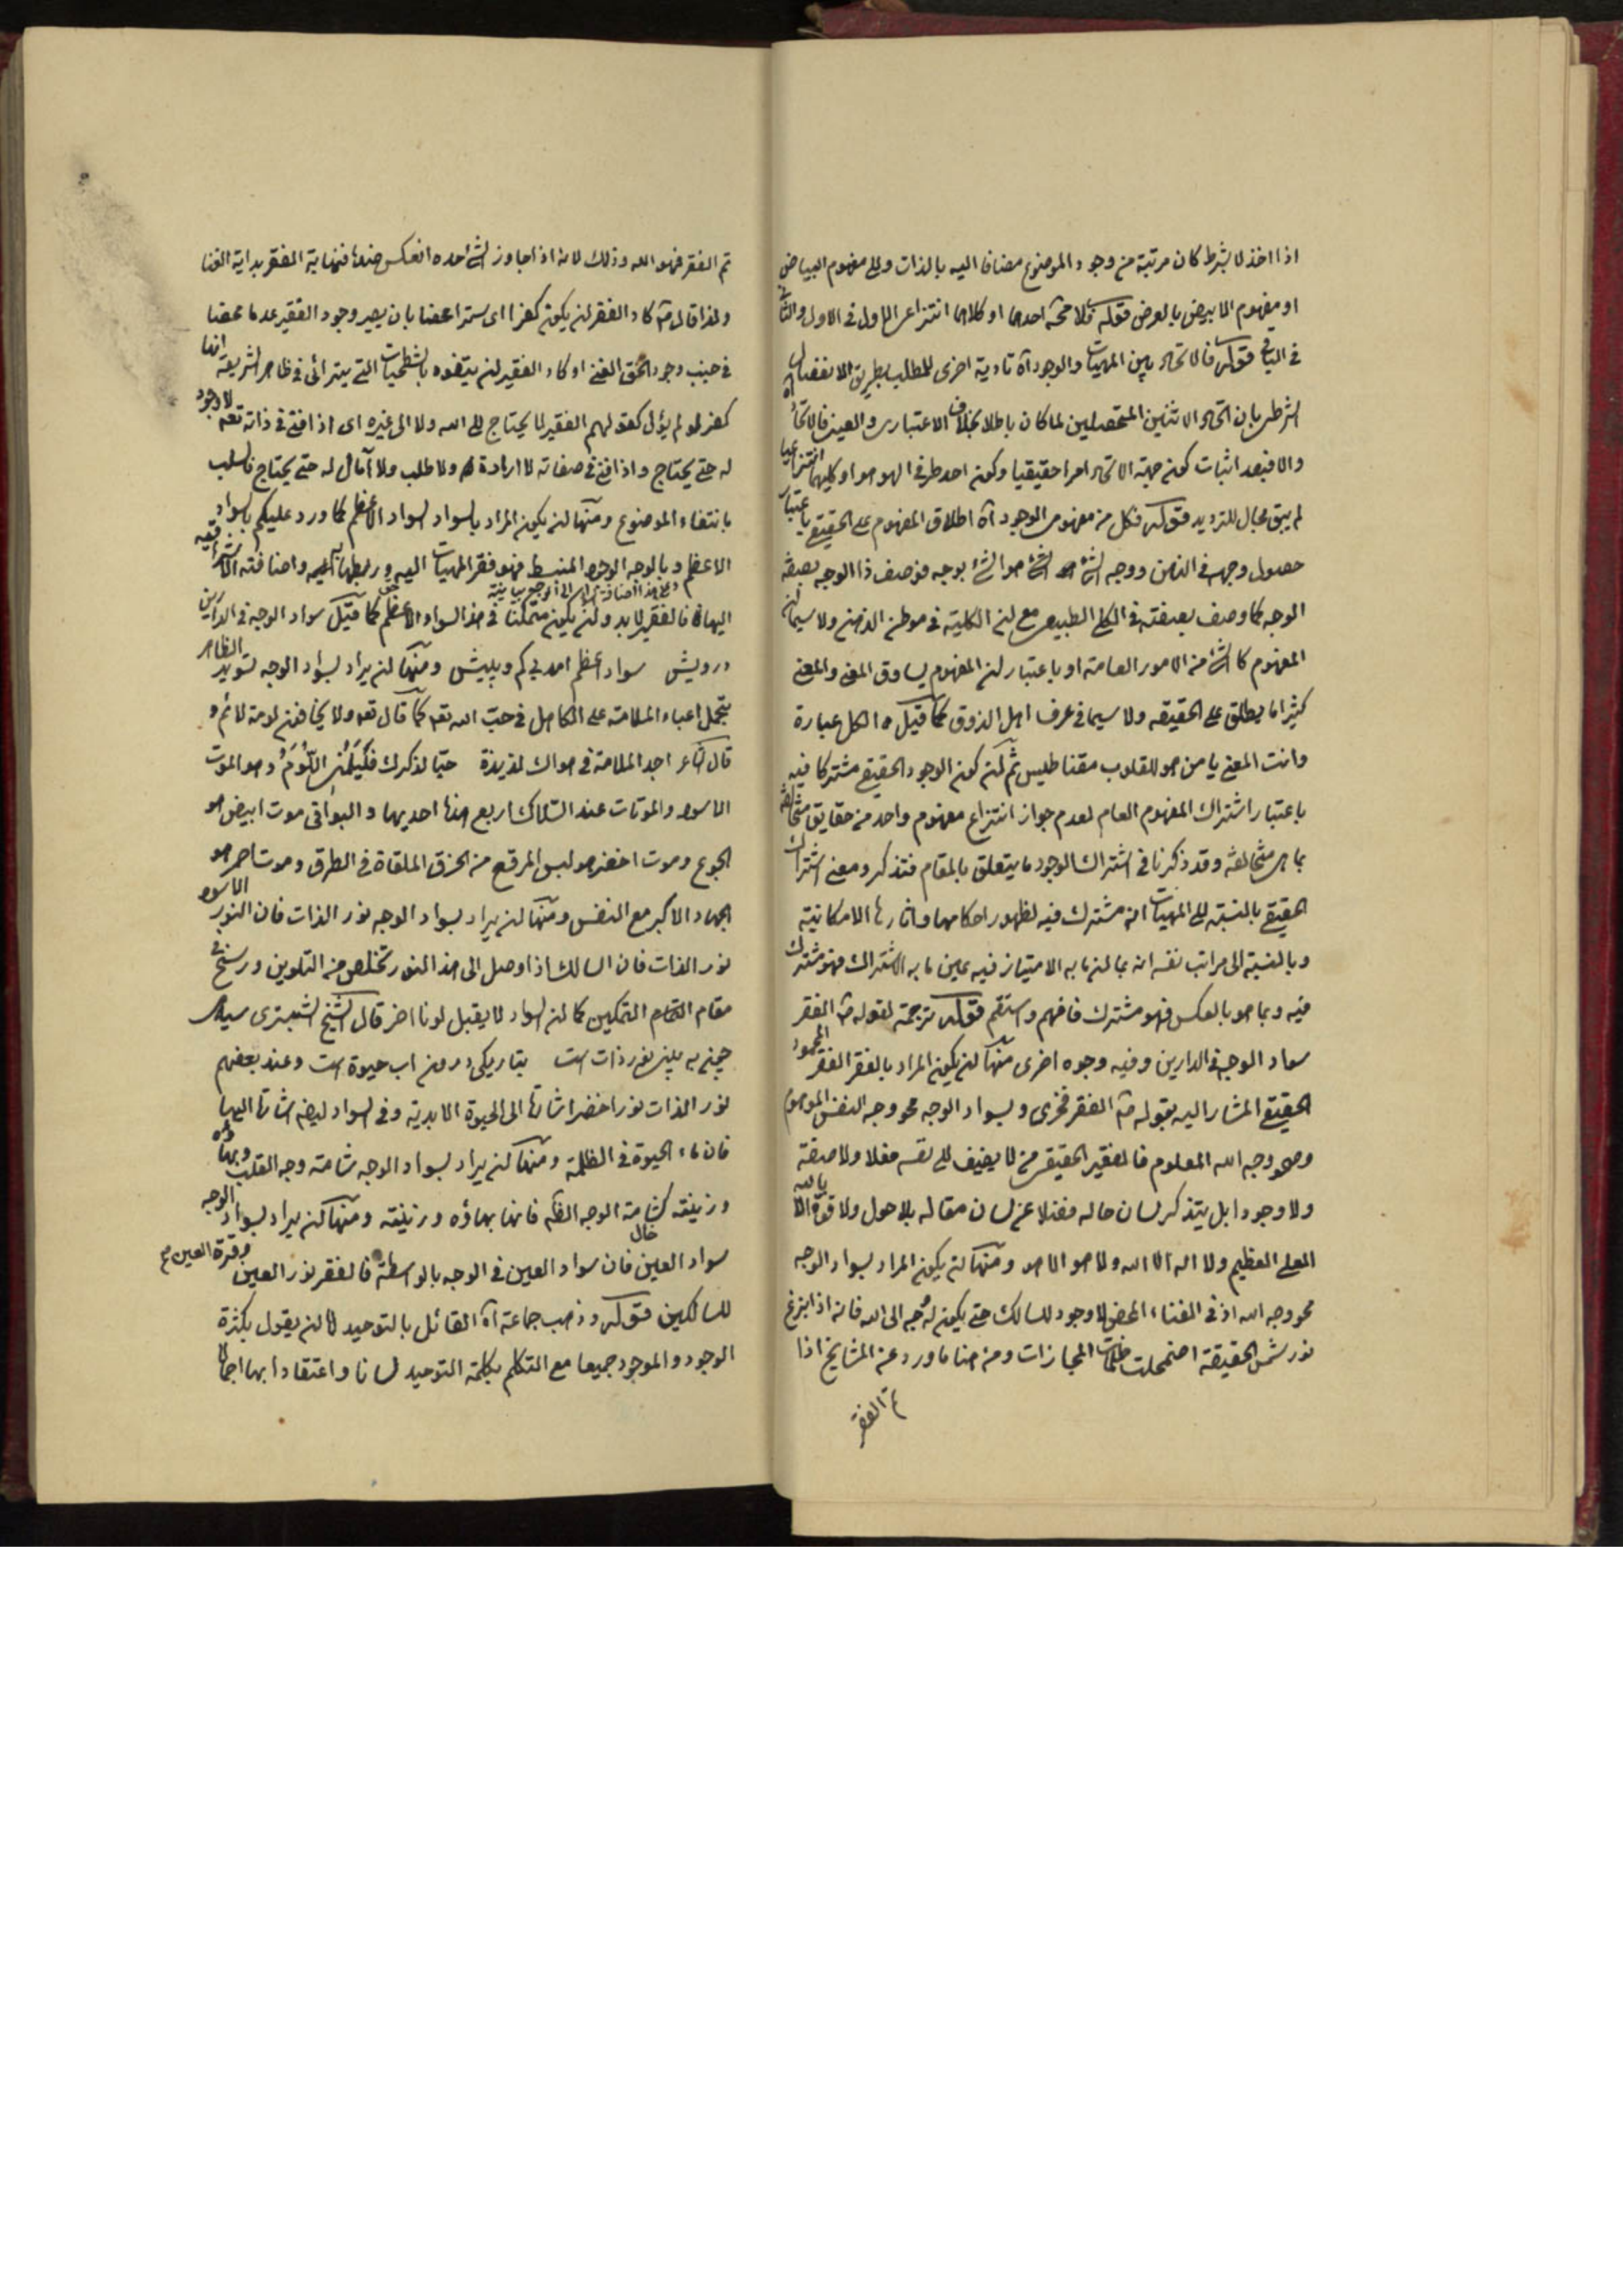 اذا اخذ لا بشرط كان مرتبة من وجود الموضوع مضافا اليه بالذات والى مفهوم البياض
او مفهوم الابيض بالعرض قوله فلا محة احدهما او كلاهما انتزاعى الاول فى الاول والثانى
فى الباقى قوله فالاتحاد بين المهيات والوجود آه تادية اخرى للمطلب بطريق الانفصال
الشرطى بان اتحاد الاثنين المتحصلين لما كان باطلا بخلاف الاعتبارى والعينى فالاتحاد
والا فبعد اثبات كون جهة الاتحاد امرا حقيقيا وكون احد طرفى الهو هو او كليهما انتزاعيا
لم يبق مجال للترديد قوله فكل من مفهومى الوجود آه اطلاق المفهوم على الحقيقى باعتبار
حصول وجهه فى الذهن ووجه الشئ هو الشئ بوجه فوصف ذا الوجه بصفة
الوجه كما وصف بصفته فى الكلى الطبيعى مع ان الكلية فى موطن الذهن ولا سيما ان
المفهوم كالشئ من الامور العامة او باعتبار ان المفهوم يساوق المعنى والمعنى
كثيرا ما يطلق على الحقيقه ولا سيما فى عرف اهل الذوق كما قيل الكل عبارة
وانت المعنى يا من هو للقلوب مقناطيس ثم ان كون الوجود الحقيقى مشتركا فيه
باعتبار اشتراك المفهوم العام لعدم جواز انتزاع مفهوم واحد من حقايق متخالفة
بما هى متخالفة وقد ذكرنا فى اشتراك الوجود ما يتعلق بالمقام فتذكر ومعنى اشتراك
الحقيقى بالنسبة الى المهيات انه مشترك فيه لظهور احكامها واثارها الامكانية
وبالنسبة الى مراتب نفسه انه بما ان ما به الامتياز فيه عين ما به الاشتراك فهو مشترك
فيه وبما هو بالعكس فهو مشترك فافهم واستقم قوله ترجمة لقوله ص الفقر
سواد الوجه فى الدارين وفيه وجوه اخرى منها ان يكون المراد بالفقر الفقر المحمود
الحقيقى المشار اليه بقوله ص الفقر فخرى وبسواد الوجه محو وجه النفس الموهوم
وصحو وجه الله المعلوم فالفقير الحقيقى من لا يضيف الى نفسه فعلا ولا صفة
ولا وجودا بل يتذكر لسان حاله فضلا عن لسان مقاله بلا حول ولا قوة الا بالله
العلى العظيم ولا اله الا الله ولا هو الا هو ومنها ان يكون المراد بسواد الوجه
محو وجه الله اذ فى الفناء المحض لا وجود للسالك حتى يكون له وجه الى الله فانه اذا بزغ
نور شمس الحقيقة اضمحلت ظلمات المجازات ومن هنا ما ورد عن المشايخ اذا
تم الفقر
تم الفقر فهو الله وذلك لانه اذا جاوز الشئ حده انعكس ضده فنهاية الفقر بداية الغنا
ولذا قال ص كاد الفقر ان يكون كفرا اى سترا محضا بان يصير وجود الفقير عدما محضا
فى جنب وجود الحق الغنى او كاد الفقير ان يتفوه بالشطحيات التى يترائى فى ظاهر الشريعة انها
كفر لو لم يؤل كقولهم الفقير لا يحتاج الى الله ولا الى غيره اى اذا فنى فى ذاته تعه لا وجود
له حتى يحتاج واذا فنى فى صفاته لا ارادة له ولا طلب ولا آمال له حتى يحتاج فالسلب
بانتفاء الموضوع ومنها ان يكون المراد بالسواد السواد الاعظم كما ورد عليكم بالسواد
الاعظم وبالوجه الوجود المنبسط فهو فقر المهيات اليه وربطها به واضافته الاشراقيه
اليها فالفقير لا بد وان يكون متمكنا فى هذا السواد الاعظم كما قيل سواد الوجه فى الدارين
درويش سواد اعظم آمد بى كم وبيش ومنها ان يراد بسواد الوجه تسويد الظاهر
بتحمل اعباء الملامة على الكاهل فى حب الله تعه كما قال تعه ولا يخافون لومة لائم و
قال الشاعر اجد الملامة فى هواك لذيذة حبا لذكرك فليلمنى اللوم وهو الموت
الاسود والموتات عند السلاك اربع هذا احديها والبواقى موت ابيض هو
الجوع وموت اخضر هو لبس المرقع من الخرق الملقاة فى الطرق وموت احمر هو
الجهاد الاكبر مع النفس ومنها ان يراد بسواد الوجه نور الذات فان النور الاسود
نور الذات فان السالك اذا وصل الى هذا النور تخلص من التلوين ورسخ فى
مقام التمكين كما ان السواد لا يقبل لونا اخر قال الشيخ الشبسترى سياهى
چون به بينى نور ذات است بتاريكى درون اب حيوة است وعند بعضهم
نور الذات نور اخضر اشارة الى الحيوة الابدية وفى السواد ايضا اشارة اليها
فان ماء الحيوة فى الظلمة ومنها ان يراد بسواد الوجه شامة وجه القلب وبهاؤه
وزينته كشامة الوجه الظاهر فانها بهاؤه وزينته ومنها ان يراد بسواد الوجه
سواد العين فان سواد العين خال فى الوجه بالواسطة فالفقر نور العين وقرة العين
للسالكين قوله وذهب جماعة آه القائل بالتوحيد اما ان يقول بكثرة
الوجود والموجود جميعا مع التكلم بكلمة التوحيد لسانا واعتقادا بها اجمالا